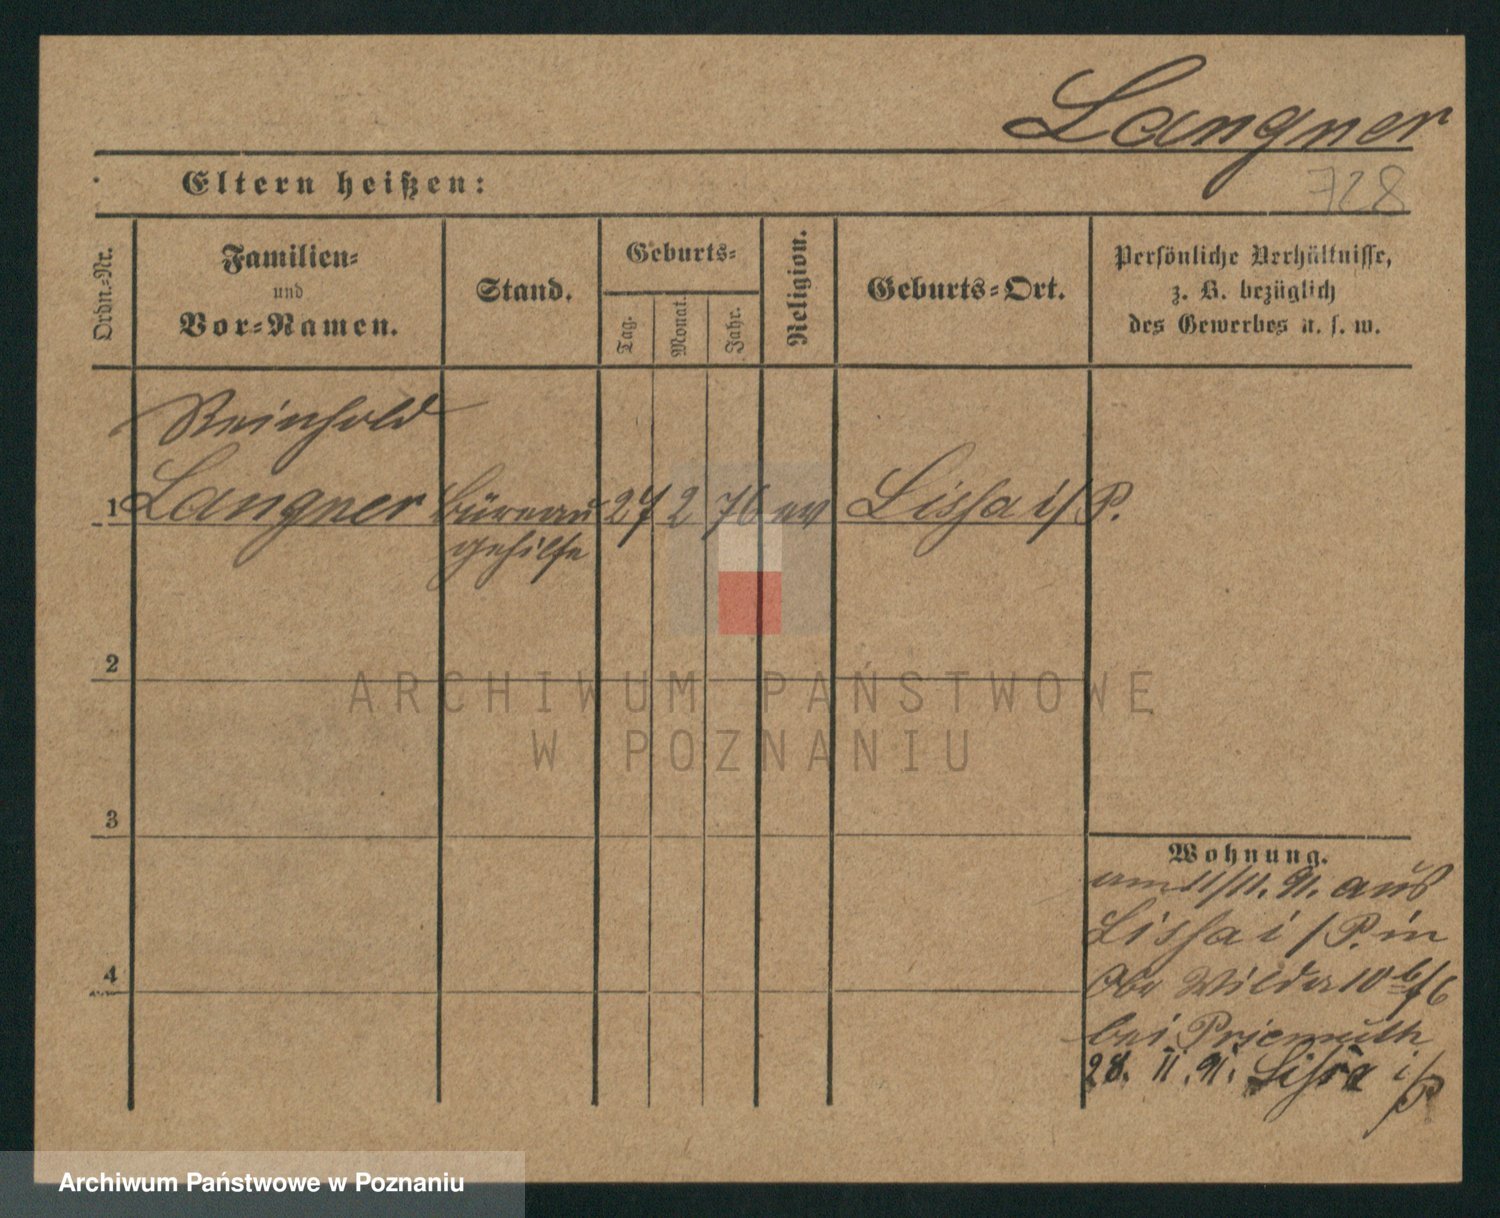 Langner
728
Eltern heißen:
Ordn.-Nr.
Familien-
und
Vor-Namen.
Stand.
Geburts-
Tag.
Monat.
Jahr.
Religion.
Geburts-Ort.
Persönliche Verhältnisse,
z. B. bezüglich
des Gewerbes u. s. w.
Reinhold
1 Langner Büreau 27 2 76 ev Lissa i/P.
gehilfe
2
3
4
Wohnung.
am 11/11. 91. aus
Lissa i/P. in
Obr Wilda 10
bei Priemuth
28. 11. 91. Lissa i/P
ARCHIWUM PAŃSTWOWE
W POZNANIU
Archiwum Państwowe w Poznaniu